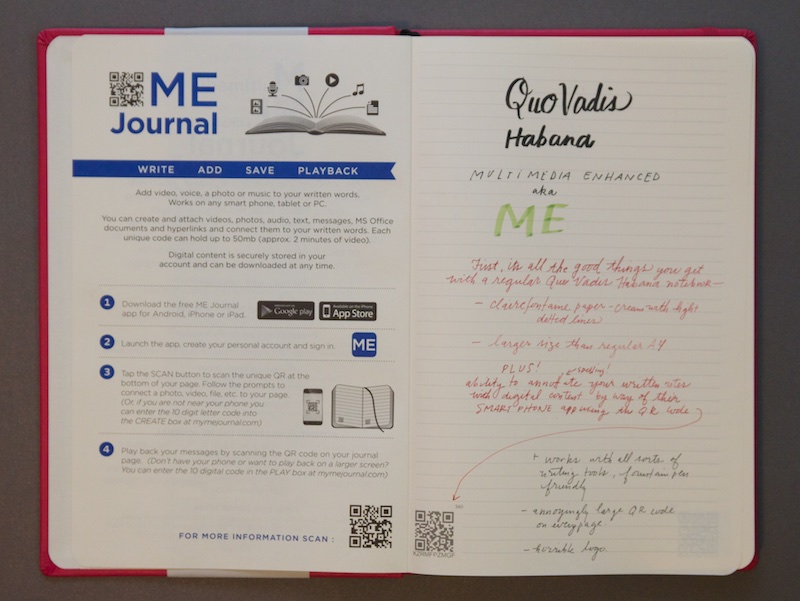 ME
Journal
WRITE ADD SAVE PLAYBACK
Add video, voice, a photo or music to your written words.
Works on any smart phone, tablet or PC.
You can create and attach videos, photos, audio, text, messages, MS Office
documents and hyperlinks and connect them to your written words. Each
unique code can hold up to 50mb (approx. 2 minutes of video).
Digital content is securely stored in your
account and can be downloaded at any time.
1 Download the free ME Journal
app for Android, iPhone or iPad.
Google play
Available on the iPhone
App Store
2 Launch the app, create your personal account and sign in.
ME
3 Tap the SCAN button to scan the unique QR at the
bottom of your page. Follow the prompts to
connect a photo, video, file, etc. to your page.
(Or, if you are not near your phone you
can enter the 10 digit letter code into
the CREATE box at mymejournal.com)
4 Play back your messages by scanning the QR code on your journal
page. (Don't have your phone or want to play back on a larger screen?
You can enter the 10 digital code in the PLAY box at mymejournal.com)
FOR MORE INFORMATION SCAN :
Quo Vadis
Habana
MULTIMEDIA ENHANCED
aka
ME
First, it's all the good things you get
with a regular Quo Vadis Habana notebook —
- clairefontaine paper - cream with light
dotted lines
- larger size than regular A4
PLUS!
ability to annotate your written notes
with digital content by way of their
SMARTPHONE app using in QR code
+ works with all sorts of
writing tools, fountain pen
friendly
- annoyingly large QR code
on every page
- horrible logo.